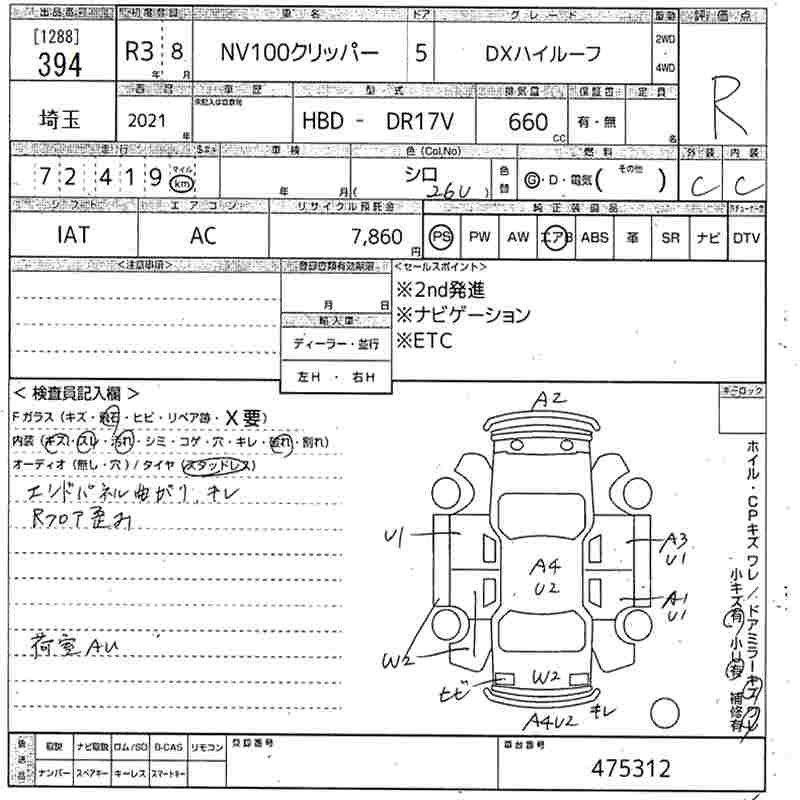 出品番号 初度登録 車名 ドア グレード 駆動 評価点
[1288] 394 R3 年 8 月 NV100クリッパー 5 DXハイルーフ 2WD ・ 4WD R
車歴 型式 排気量 保証書 定員
埼玉 2021 年 HBD - DR17V 660 CC 有・無 名
走行 車検 色(Col.No) 燃料 外装 内装
72419 マイル km 年 月 シロ ( 26U ) 色替 G・D・電気( その他 ) C C
シフト エアコン リサイクル預託金 純正装備品
IAT AC 7,860 円 PS PW AW エアB ABS 革 SR ナビ DTV
<注意事項> 登録書類有効期限 <セールスポイント>
月 日 ※2nd発進
輸入車 ※ナビゲーション
ディーラー・並行 ※ETC
左H ・ 右H
< 検査員記入欄 > キーロック
Fガラス (キズ・飛石・ヒビ・リペア跡・X要)
内装 (キズ・スレ・汚れ・シミ・コゲ・穴・キレ・破れ・割れ)
オーディオ (無し・穴) / タイヤ (スタッドレス)
エンドパネル曲がり、キレ
Rフロア歪み
荷室AU
A2
U1 A3 U1
A4 U2
A1 U1
W2 W2
ヒビ キレ
A4U2
ホイル・CPキズ ワレ / ドアミラーキズ ワレ
小キズ有 / 小U有 補修有
後送品 取説 ナビ取説 ロム/SD B-CAS リモコン 登録番号 車台番号
ナンバー スペアキー キーレス スマートキー 475312